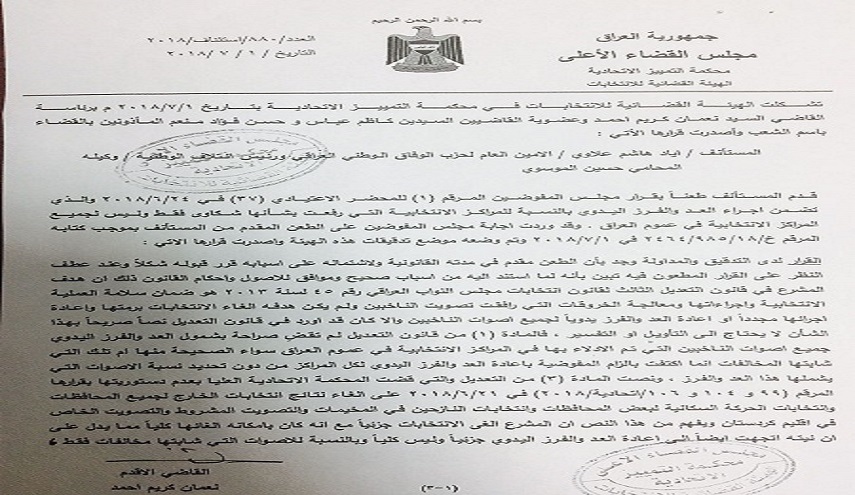 بسم الله الرحمن الرحيم
جمهورية العراق
مجلس القضاء الأعلى
محكمة التمييز الاتحادية
الهيئة القضائية للانتخابات
العدد/٨٨٠/استئناف/٢٠١٨
التاريخ / ١ / ٧ / ٢٠١٨
تشكلت الهيئة القضائية للانتخابات في محكمة التمييز الاتحادية بتاريخ ٢٠١٨/٧/١ م برئاسة
القاضي السيد نعمان كريم احمد وعضوية القاضيين السيدين كاظم عباس و حسن فؤاد منعم المأذونين بالقضاء
باسم الشعب وأصدرت قرارها الآتي :
المستأنف / اياد هاشم علاوي / الامين العام لحزب الوفاق الوطني العراقي ورئيس ائتلاف الوطنية / وكيله
المحامي حسين الموسوي
قدم المستأنف طعناً بقرار مجلس المفوضين المرقم (١) للمحضر الاعتيادي (٣٧) في ٢٠١٨/٦/٢٤ والذي
تضمن اجراء العد والفرز اليدوي بالنسبة للمراكز الانتخابية التي رفعت بشأنها شكاوى فقط وليس لجميع
المراكز الانتخابية في عموم العراق . وقد وردت اجابة مجلس المفوضين على الطعن المقدم من المستأنف بموجب كتابه
المرقم خ/٢٤٦٤/٩٨٥/١٨ في ٢٠١٨/٧/١ وتم وضعه موضع تدقيقات هذه الهيئة واصدرت قرارها الآتي :
القرار لدى التدقيق والمداولة وجد بأن الطعن مقدم في مدته القانونية ولاشتماله على اسبابه قرر قبوله شكلاً وعند عطف
النظر على القرار المطعون فيه تبين بأنه لما استند اليه من اسباب صحيح وموافق للاصول واحكام القانون ذلك ان هدف
المشرع في قانون التعديل الثالث لقانون انتخابات مجلس النواب العراقي رقم ٤٥ لسنة ٢٠١٣ هو ضمان سلامة العملية
الانتخابية واجراءاتها ومعالجة الخروقات التي رافقت تصويت الناخبين ولم يكن هدفه الغاء الانتخابات برمتها وإعادة
اجرائها مجدداً او اعادة العد والفرز يدوياً لجميع اصوات الناخبين والا كان قد اورد في قانون التعديل نصاً صريحاً بهذا
الشأن لا يحتاج الى التأويل او التفسير . فالمادة (١) من قانون التعديل لم تقض صراحة بشمول العد والفرز اليدوي
جميع اصوات الناخبين التي تم الادلاء بها في المراكز الانتخابية في عموم العراق سواء الصحيحة منها ام تلك التي
شابتها المخالفات انما اكتفت بالزام المفوضية باعادة العد والفرز اليدوي لكل المراكز من دون تحديد نسبة الاصوات التي
يشملها هذا العد والفرز . ونصت المادة (٣) من التعديل والتي قضت المحكمة الاتحادية العليا بعدم دستوريتها بقرارها
المرقم (٩٩ و ١٠٤ و ١٠٦/اتحادية/٢٠١٨) في ٢٠١٨/٦/٢١ على الغاء نتائج انتخابات الخارج لجميع المحافظات
وانتخابات الحركة السكانية لبعض المحافظات وانتخابات النازحين في المخيمات والتصويت المشروط والتصويت الخاص
في اقليم كردستان ويفهم من هذا النص ان المشرع الغى الانتخابات جزئياً مع انه كان بامكانه الغائها كلياً مما يدل على
ان نيته اتجهت ايضاً الى إعادة العد والفرز اليدوي جزئياً وليس كلياً وبالنسبة للاصوات التي شابتها مخالفات فقط
القاضي الاقدم
نعمان كريم احمد
(٣-١)
محكمة التمييز
الاتحادية